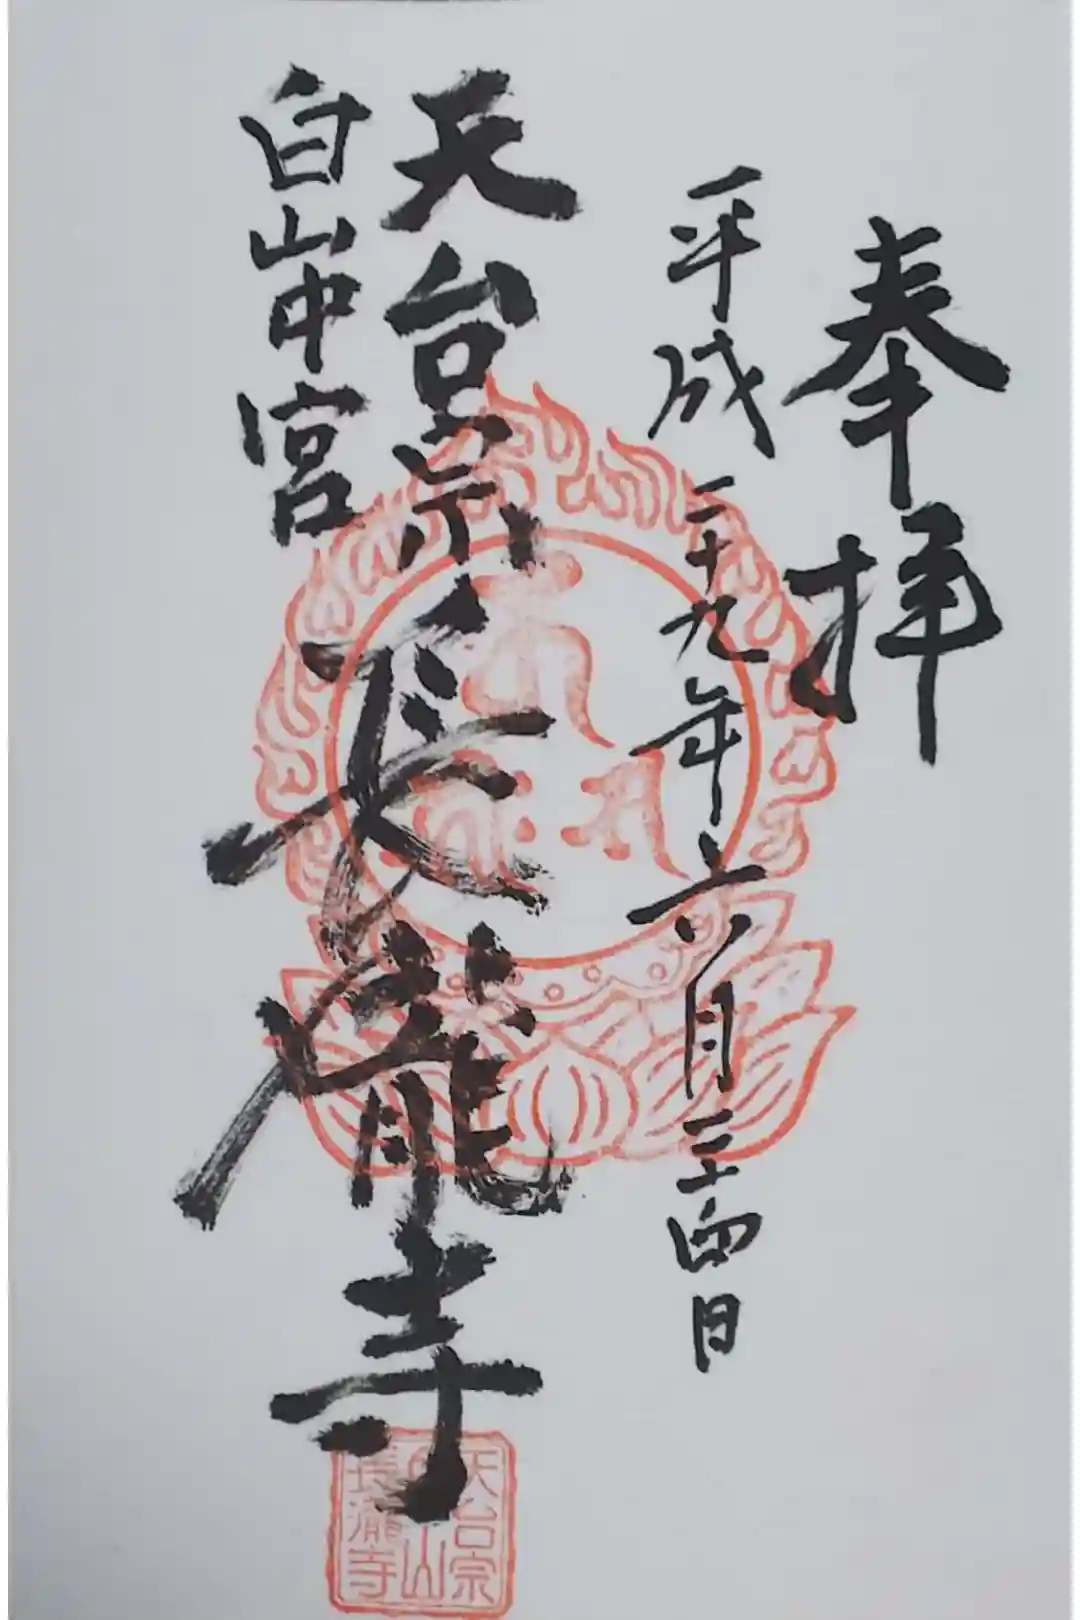 奉拝
平成二十九年六月二十四日
天台宗 長瀧寺
白山中宮
天台宗
白山
長瀧寺